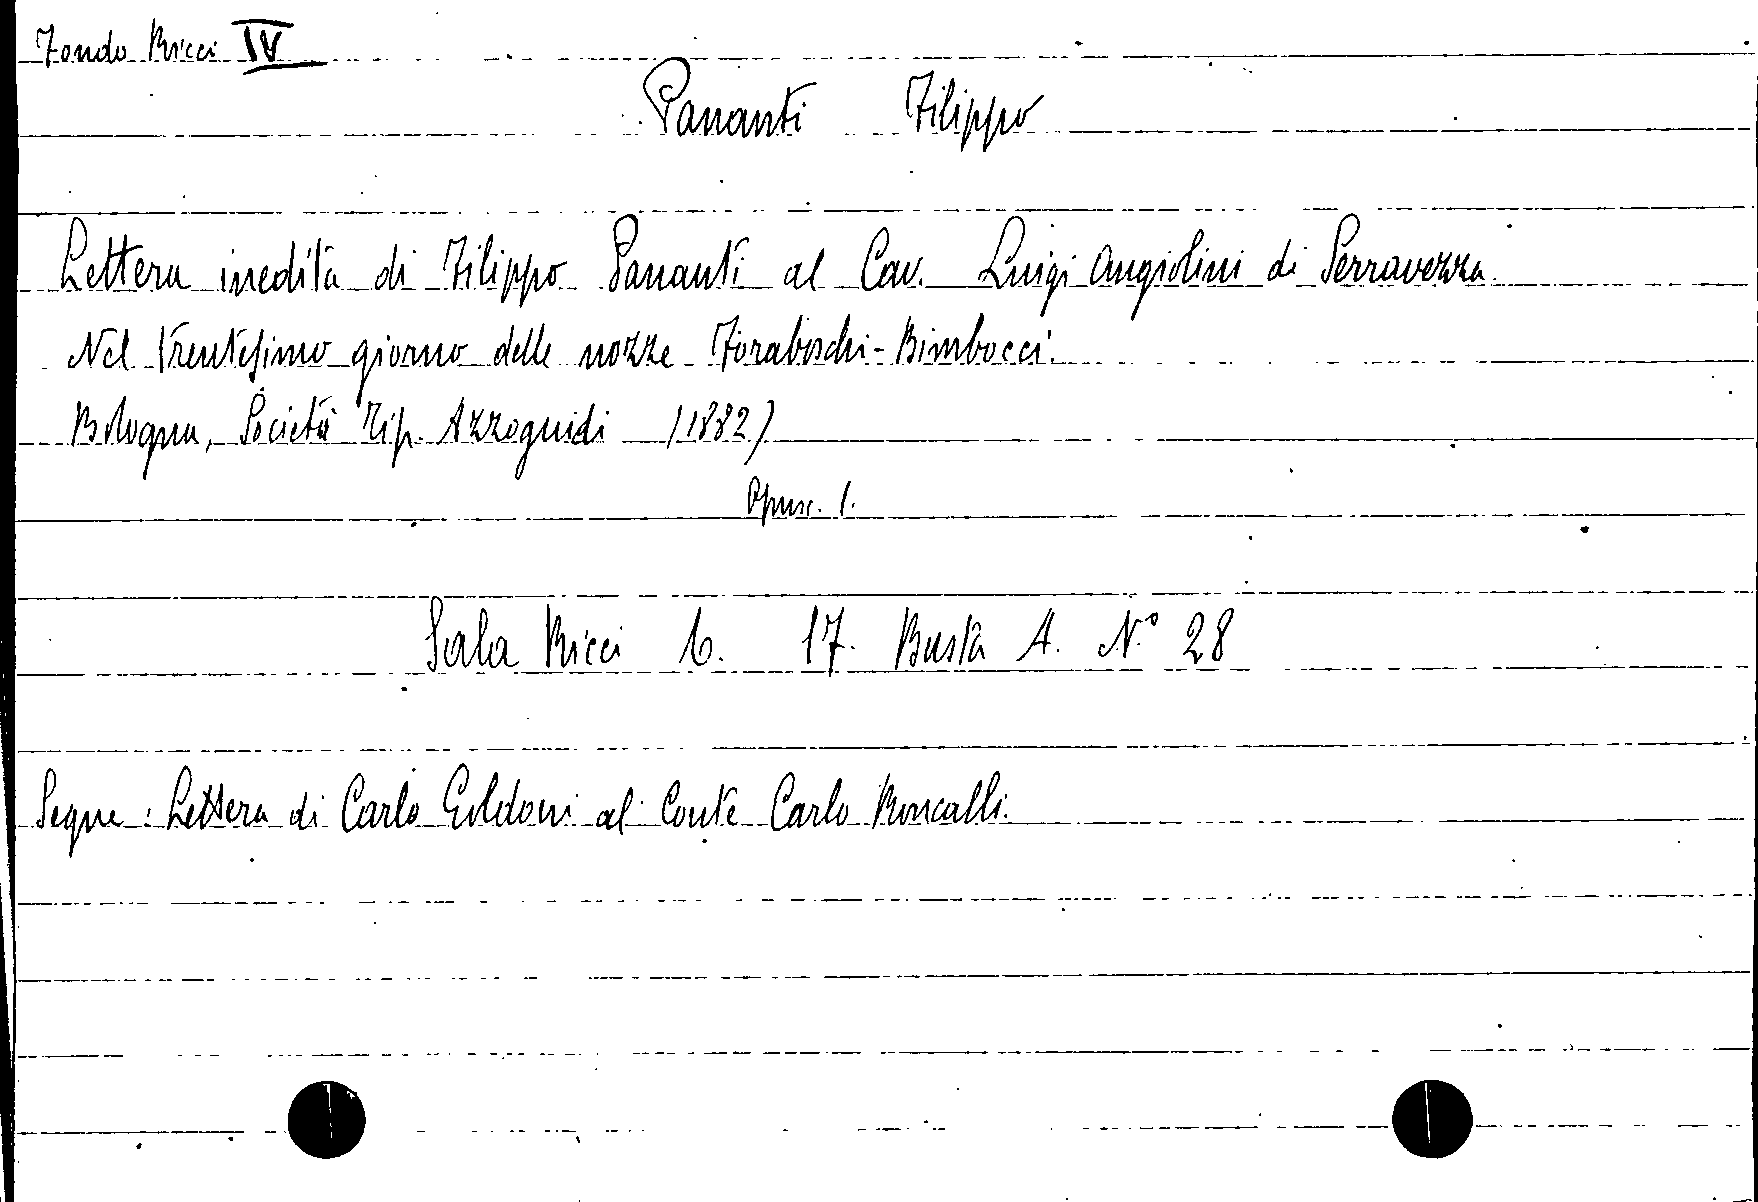 Fondo Ricci IV
Pananti Filippo
Lettera inedita di Filippo Pananti al Cav. Luigi Angiolini di Serravezza.
Nel trentesimo giorno delle nozze Foraboschi-Bimbocci.
Bologna, Società Tip. Azzoguidi (1882)
Opusc. 1.
Sala Ricci C. 17. Busta A. N.° 28
Segue: Lettera di Carlo Goldoni al Conte Carlo Roncalli.